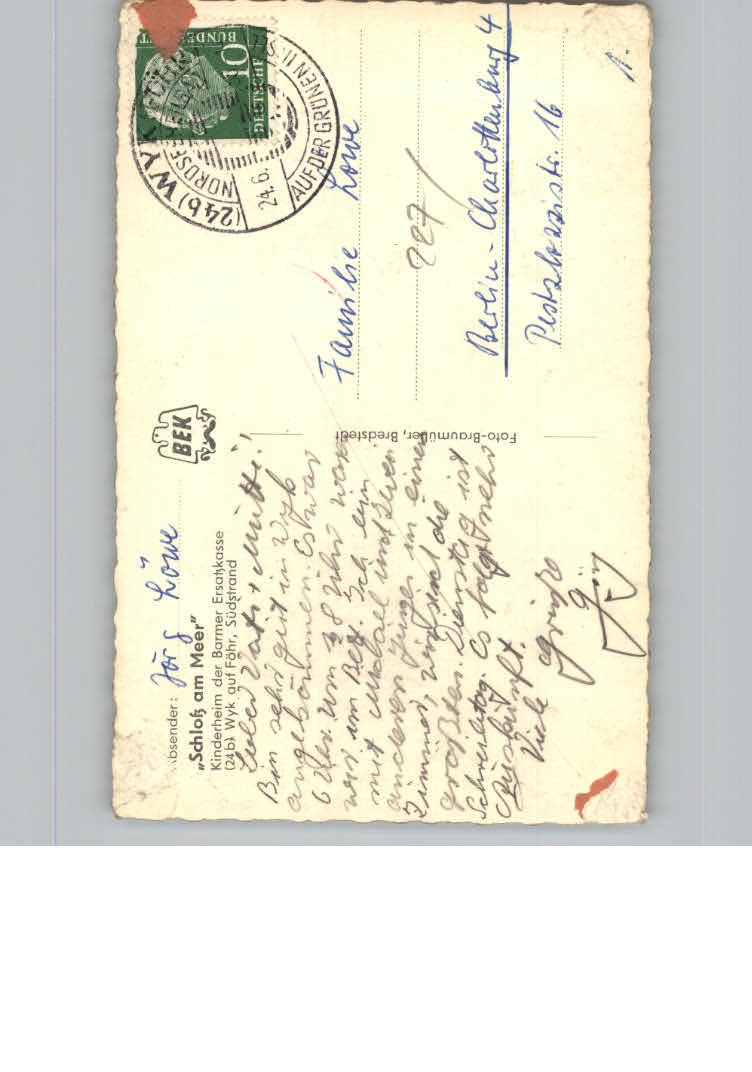 Absender: Jörg Löwe
„Schloß am Meer"
Kinderheim der Barmer Ersatzkasse
(24b) Wyk auf Föhr, Südstrand
BEK
Lieber Vati + Mutti!
Bin sehr gut in Wyk
angekommen. Es war
6 Uhr. Um 8 Uhr war
wir im Bett. Ich bin
mit Michael und zwei
anderen Jungen in einem
Zimmer, wir sind die
größten. Dienstag ist
Schreibtag. Es folgt mehr
Auskunft.
Viele Grüße
Jörg
Foto-Braumüller, Bredstedt
DEUTSCHE
BUNDESPOST
10
(24b) WYK A FÖHR
NORDSEE
24.6.
AUF DER GRÜNEN INSEL
Familie Löwe
227/
Berlin-Charlottenburg 4
Pestalozzistr. 16
1.-